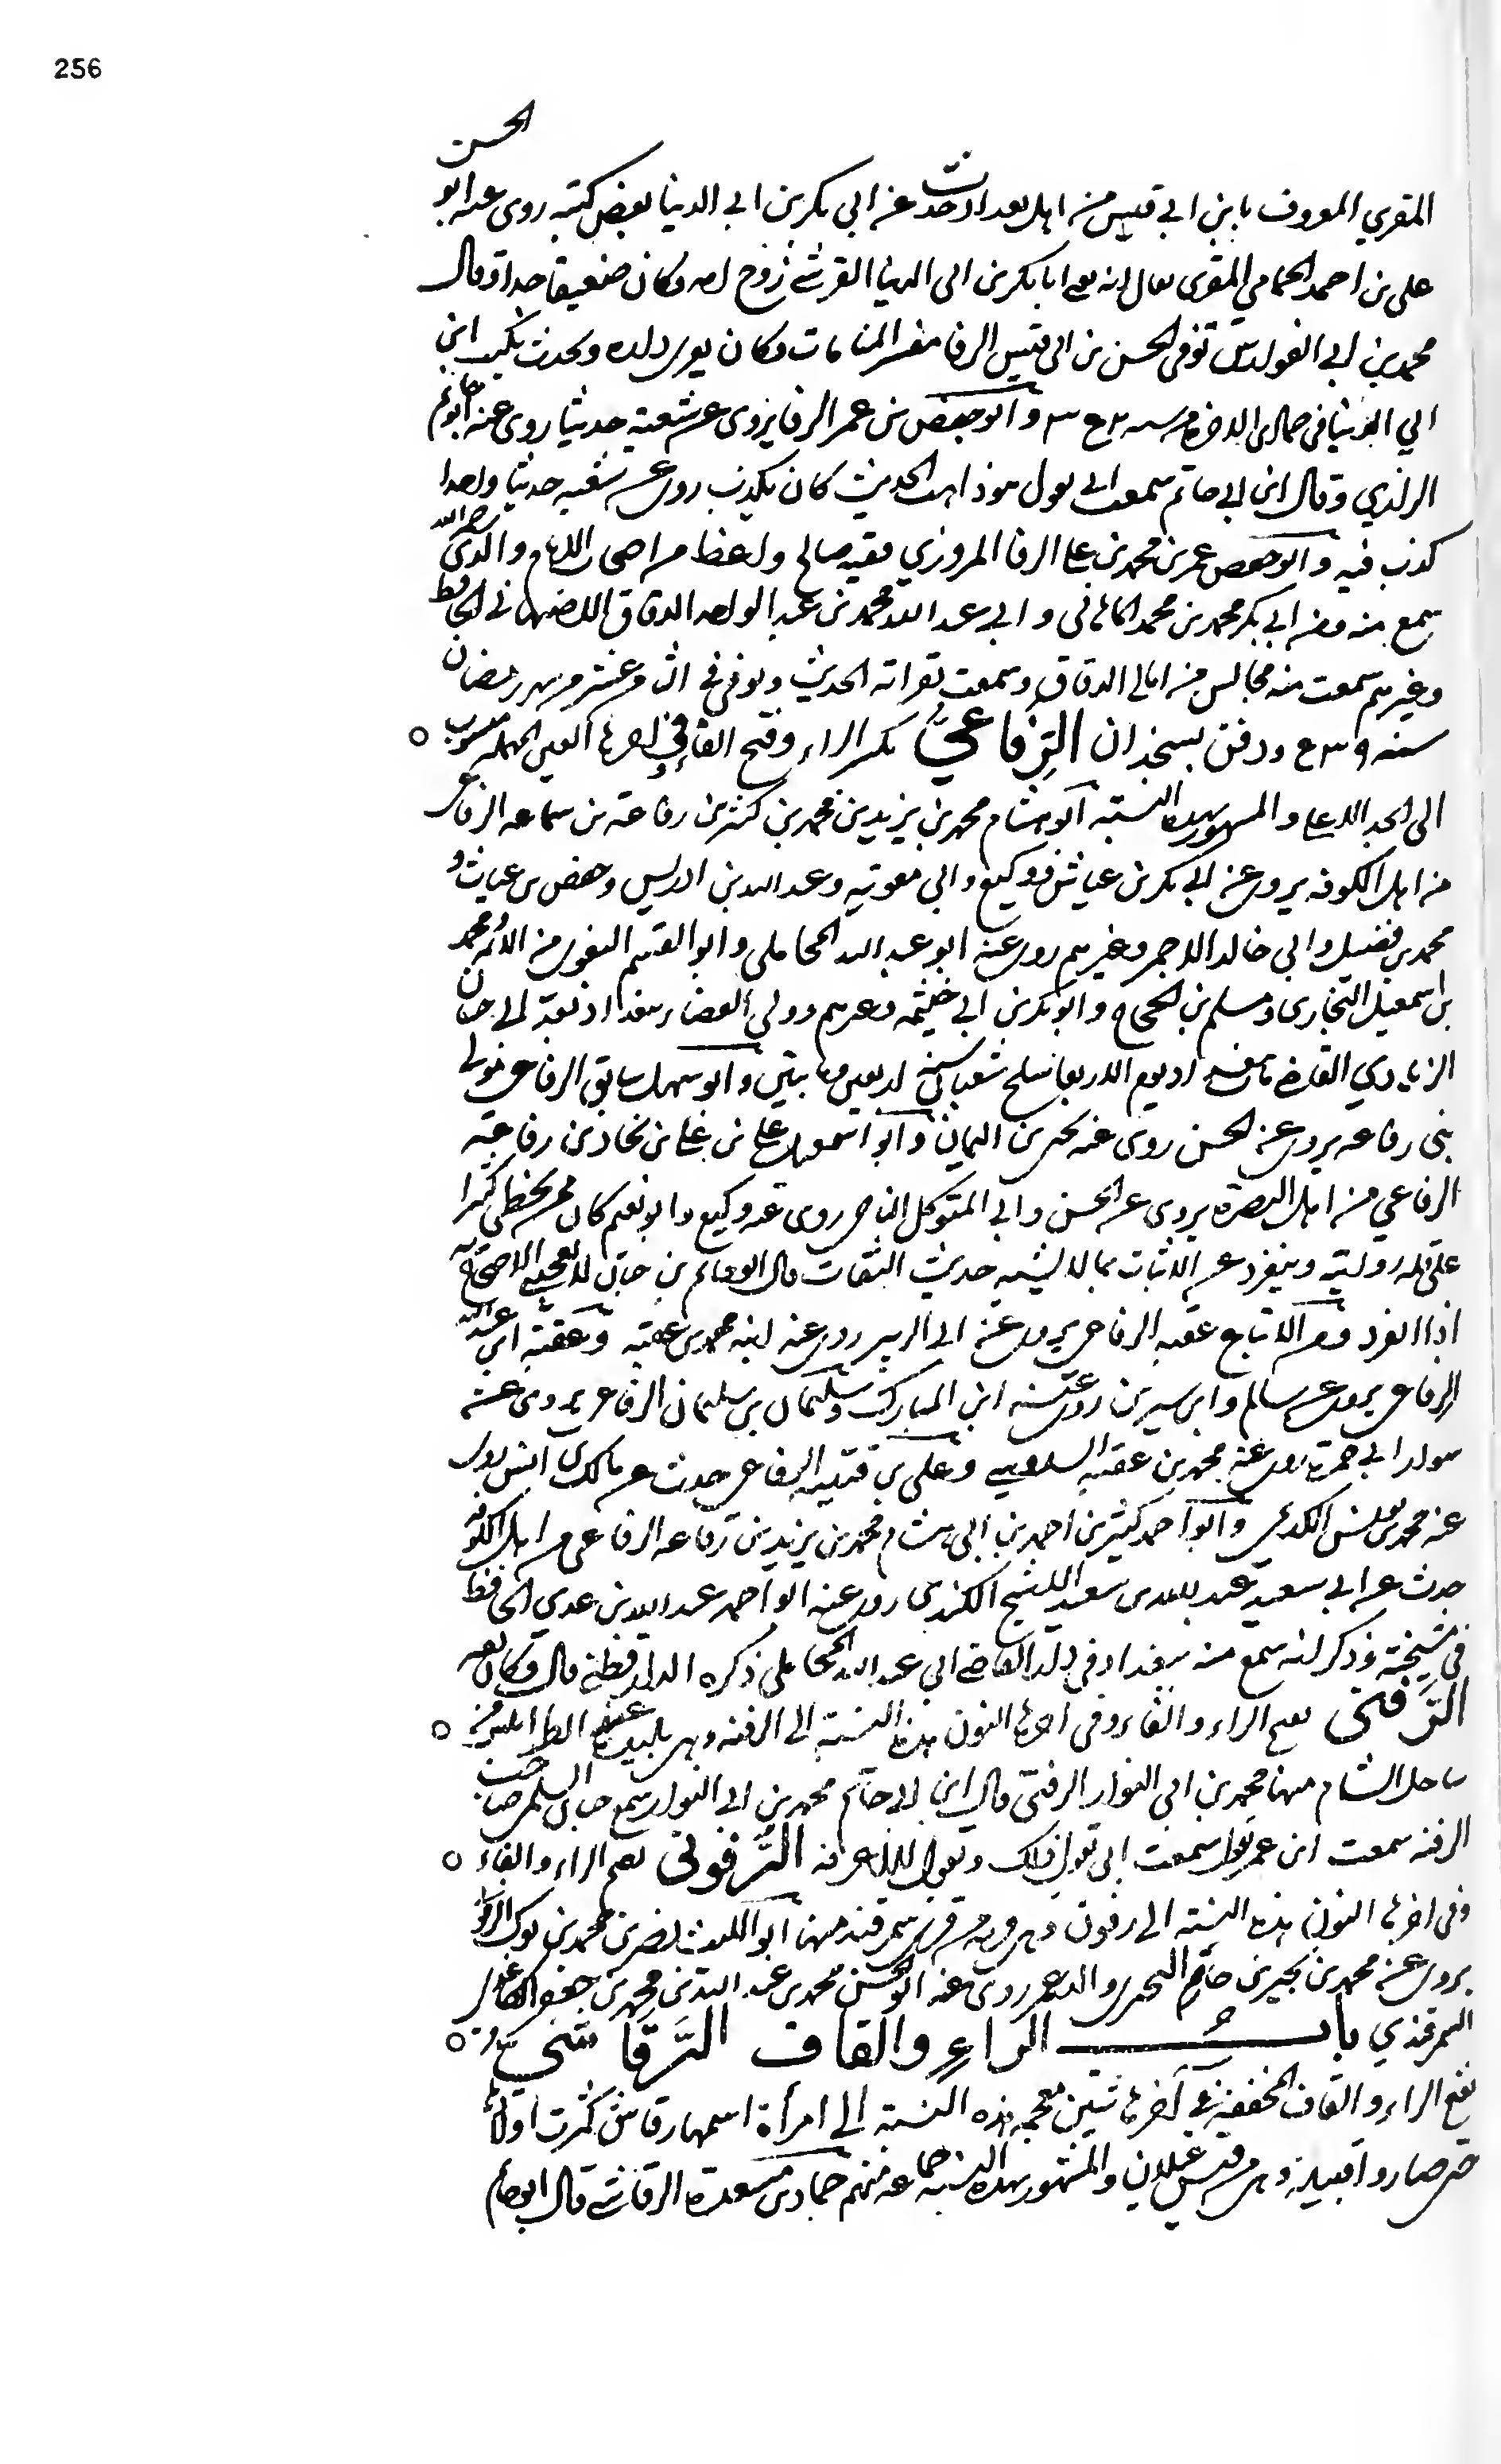 256
الحسن
المقري المعروف بابن ابي قيس من اهل بغداد حدث عن ابي بكر بن ابي الدنيا بعض كتبه روى عنه ابو
علي بن احمد الحمامي المقرى يقال انه ابا بكر بن ابى الدنيا القرشي زوج امه وكان ضعيفا جدا وقال
محمد بن ابي الفوارس توفى الحسن بن ابى قيس الرفا مفسر المنامات وكان يحدث بكتب ابن
ابي الدنيا فى جمادى الاخرة وابو حفص بن عمر الرفا يروى عن شعبة حديثا روى عنه ابو حاتم
الرازي وقال ابن ابي حاتم سمعت ابى يقول هو ذاهب الحديث كان يكذب روى عن شعبه حديثا واحدا
كذب فيه وابو حفص عمر بن محمد بن على الرفا المروزي فقيه صالح واعظ من اصحاب الامام والدى رحمه الله
سمع منه ومن ابي بكر محمد بن محمد الماهانى وابى عبد الله محمد بن عبد الواحد الدقاق الاصبهانى الحافظ
وغيرهم سمعت منه مجالس من امالى الدقاق وسمعت بقراته الحديث وتوفى فى الثامن عشر من شهر رمضان
سنه ودفن بسنجذان الرِّفَاعيُّ بكسر الراء وفتح الفاء وفي اخرها العين المهمله منسوب
الى الجد الاعلى والمشهور بهذه النسبة ابو هشام محمد بن يزيد بن محمد بن كثير بن رفاعة بن سماعه الرفاعى
من اهل الكوفه يروى عن ابى بكر بن عياش ووكيع وابي معوية وعبد الله بن ادريس وحفص بن غياث و
محمد بن فضيل وابي خالد الاحمر وغيرهم روى عنه ابو عبد الله المحاملى وابو القسم البغوى ومن الائمة محمد
بن اسمعيل البخارى ومسلم بن الحجاج وابو بكر بن ابي خيثمه وغيرهم وولى القضاء ببغداد بعد ابى حسان
الزيادي القاضى ببغداد يوم الاربعا سلخ شعبان سنة وابو سهل سابق الرفاعى مولى
بنى رفاعه يروى عن الحسن روى عنه يحيى بن اليمان وابو اسمعيل على بن على بن نجاد بن رفاعة
الرفاعي من اهل البصرة يروى عن الحسن وابى المتوكل الناجى روى عنه وكيع وابو نعيم كان ممن يخطى كثيرا
على قلة روايته وينفرد عن الاثبات بما لا يشبه حديث الثقات قال ابو حاتم بن حبان لا يعجبنى الاحتجاج به
اذا انفرد ومن الاتباع عقبه الرفاعى يروى عن ابى الزبير روى عنه ابنه محمد بن عقبة وعقبة ابى عبد الله
الرفاعى يروى عن سالم وابن سيرين روى عنه ابن المبارك وسليمان بن سليمان الرفاعى يروى عن
سوار ابى حمزة روى عنه محمد بن عقبه السدوسى وعلى بن قتيبة الرفاعى حدث عن مالك بن انس روى
عنه محمد بن يونس الكديمى وابو احمد كثير بن احمد بن ابى هشام محمد بن يزيد بن رفاعه الرفاعى من اهل الكوفه
حدث عن ابى سعيد عبد الله بن سعيد الاشج الكندى روى عنه ابو احمد عبد الله بن عدي الحافظ
فى مشيخته وذكر انه سمع منه ببغداد فى دار القاضى ابى عبد الله المحاملى ذكره الدارقطنى قال وكان ثقه
الرَّفَنى بفتح الراء والفاء وفى اخرها النون هذه النسبة الى الرفنه وهى بليدة عند اطرابلس من
ساحل الشام منها محمد بن ابى النوار الرفنى قال ابن ابى حاتم محمد بن ابى النوار سمع حبان السلمى صاحب
الرفنه سمعت ابن عمر يقول سمعت ابى يقول ذلك ويقول لا اعرفه الرَّفونى بفتح الراء والفاء
وفى اخرها النون هذه النسبه الى رفون وهى قرية من قرى سمرقند منها ابو الليث نصر بن محمد بن بوك الرفونى
يروى عن محمد بن بجير بن خازم البجيرى والد عمر روى عنه ابو الحسن محمد بن عبد الله بن محمد بن جعفر الكاغدى
السمرقندي باب الراء والقاف الرَّقَاشى
بفتح الراء والقاف المخففة وفي آخرها شين معجمه هذه النسبة الى امرأة اسمها رقاش كثرت اولادها
حتى صاروا قبيلة وهى من قيس عيلان والمشهور بهذه النسبه جماعه منهم حماد بن مسعدة الرقاشى قال ابو حاتم